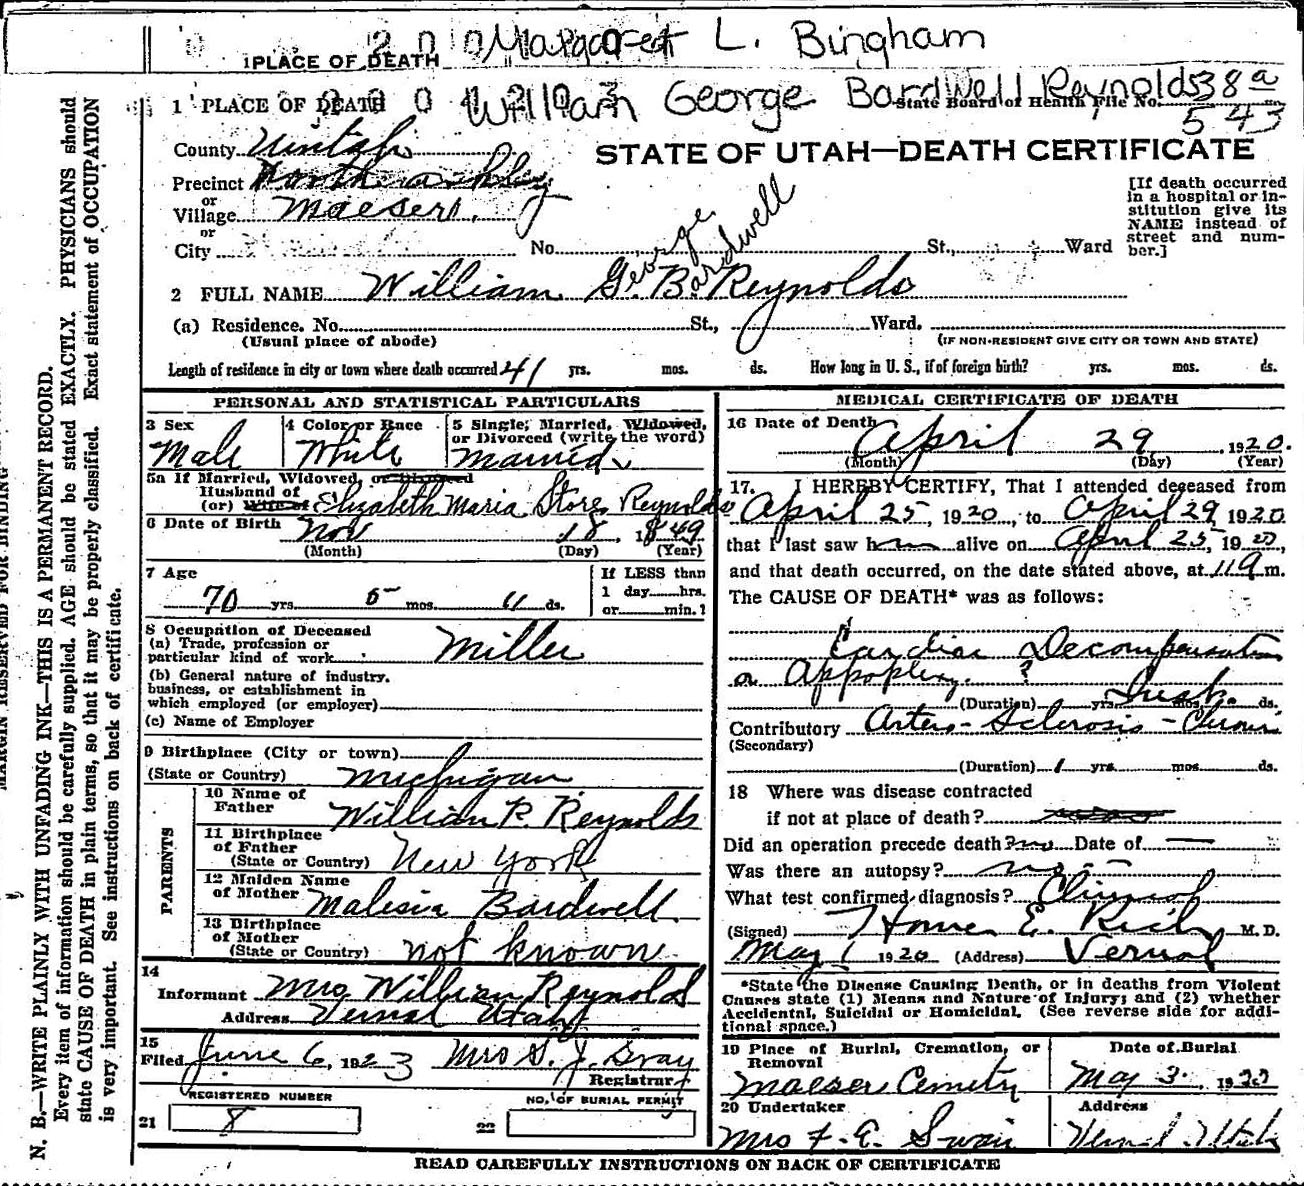 Margaret L. Bingham
PLACE OF DEATH
William George Bardwell Reynolds 38a
1 PLACE OF DEATH
State Board of Health File No. 543
County Uintah
STATE OF UTAH—DEATH CERTIFICATE
Precinct North Ashley
or
Village Maeser
or
City
No. St., Ward
[If death occurred in a hospital or institution give its NAME instead of street and number.]
George Bardwell
2 FULL NAME William G. B. Reynolds
(a) Residence. No. St., Ward.
(Usual place of abode)
(IF NON-RESIDENT GIVE CITY OR TOWN AND STATE)
Length of residence in city or town where death occurred 41 yrs. mos. ds. How long in U. S., if of foreign birth? yrs. mos. ds.
PERSONAL AND STATISTICAL PARTICULARS
3 Sex
Male
4 Color or Race
White
5 Single, Married, Widowed, or Divorced (write the word)
Married
5a If Married, Widowed, or Divorced
Husband of
(or) Wife of Elizabeth Maria Stores Reynolds
6 Date of Birth Nov 18, 1849
(Month) (Day) (Year)
7 Age
70 yrs. 5 mos. 11 ds.
If LESS than
1 day hrs.
or min.?
8 Occupation of Deceased
(a) Trade, profession or
particular kind of work Miller
(b) General nature of industry.
business, or establishment in
which employed (or employer)
(c) Name of Employer
9 Birthplace (City or town)
(State or Country) Michigan
PARENTS
10 Name of
Father William P. Reynolds
11 Birthplace
of Father
(State or Country) New York
12 Maiden Name
of Mother Malisia Bardwell
13 Birthplace
of Mother
(State or Country) not known
14
Informant Mrs William Reynolds
Address Vernal Utah
15
Filed June 6, 1923 Mrs S. J. Gray
Registrar
REGISTERED NUMBER
NO. OF BURIAL PERMIT
21 8
22
MEDICAL CERTIFICATE OF DEATH
16 Date of Death April 29, 1920.
(Month) (Day) (Year)
17. I HEREBY CERTIFY, That I attended deceased from
April 25, 1920, to April 29 1920
that I last saw him alive on April 25, 1920,
and that death occurred, on the date stated above, at 11 a m.
The CAUSE OF DEATH* was as follows:
Cardiac Decompensation
or Appoplexy. ?
(Duration) yrs. mos. ds.
Contributory Arterio-Sclerosis - Chronic
(Secondary)
(Duration) 1 yrs. mos. ds.
18 Where was disease contracted
if not at place of death?
Did an operation precede death? no Date of —
Was there an autopsy? no
What test confirmed diagnosis? Clinical
(Signed) Homer E. Rich M. D.
May 1 1920 (Address) Vernal
*State the Disease Causing Death, or in deaths from Violent
Causes state (1) Means and Nature of Injury; and (2) whether
Accidental, Suicidal or Homicidal. (See reverse side for addi-
tional space.)
19 Place of Burial, Cremation, or
Removal
Maeser Cemetry
Date of Burial
May 3. 1920
20 Undertaker
Mrs F. E. Swain
Address
Vernal Utah
READ CAREFULLY INSTRUCTIONS ON BACK OF CERTIFICATE
MARGIN RESERVED FOR BINDING
N. B.—WRITE PLAINLY WITH UNFADING INK—THIS IS A PERMANENT RECORD.
Every item of information should be carefully supplied. AGE should be stated EXACTLY. PHYSICIANS should
state CAUSE OF DEATH in plain terms, so that it may be properly classified. Exact statement of OCCUPATION
is very important. See instructions on back of certificate.